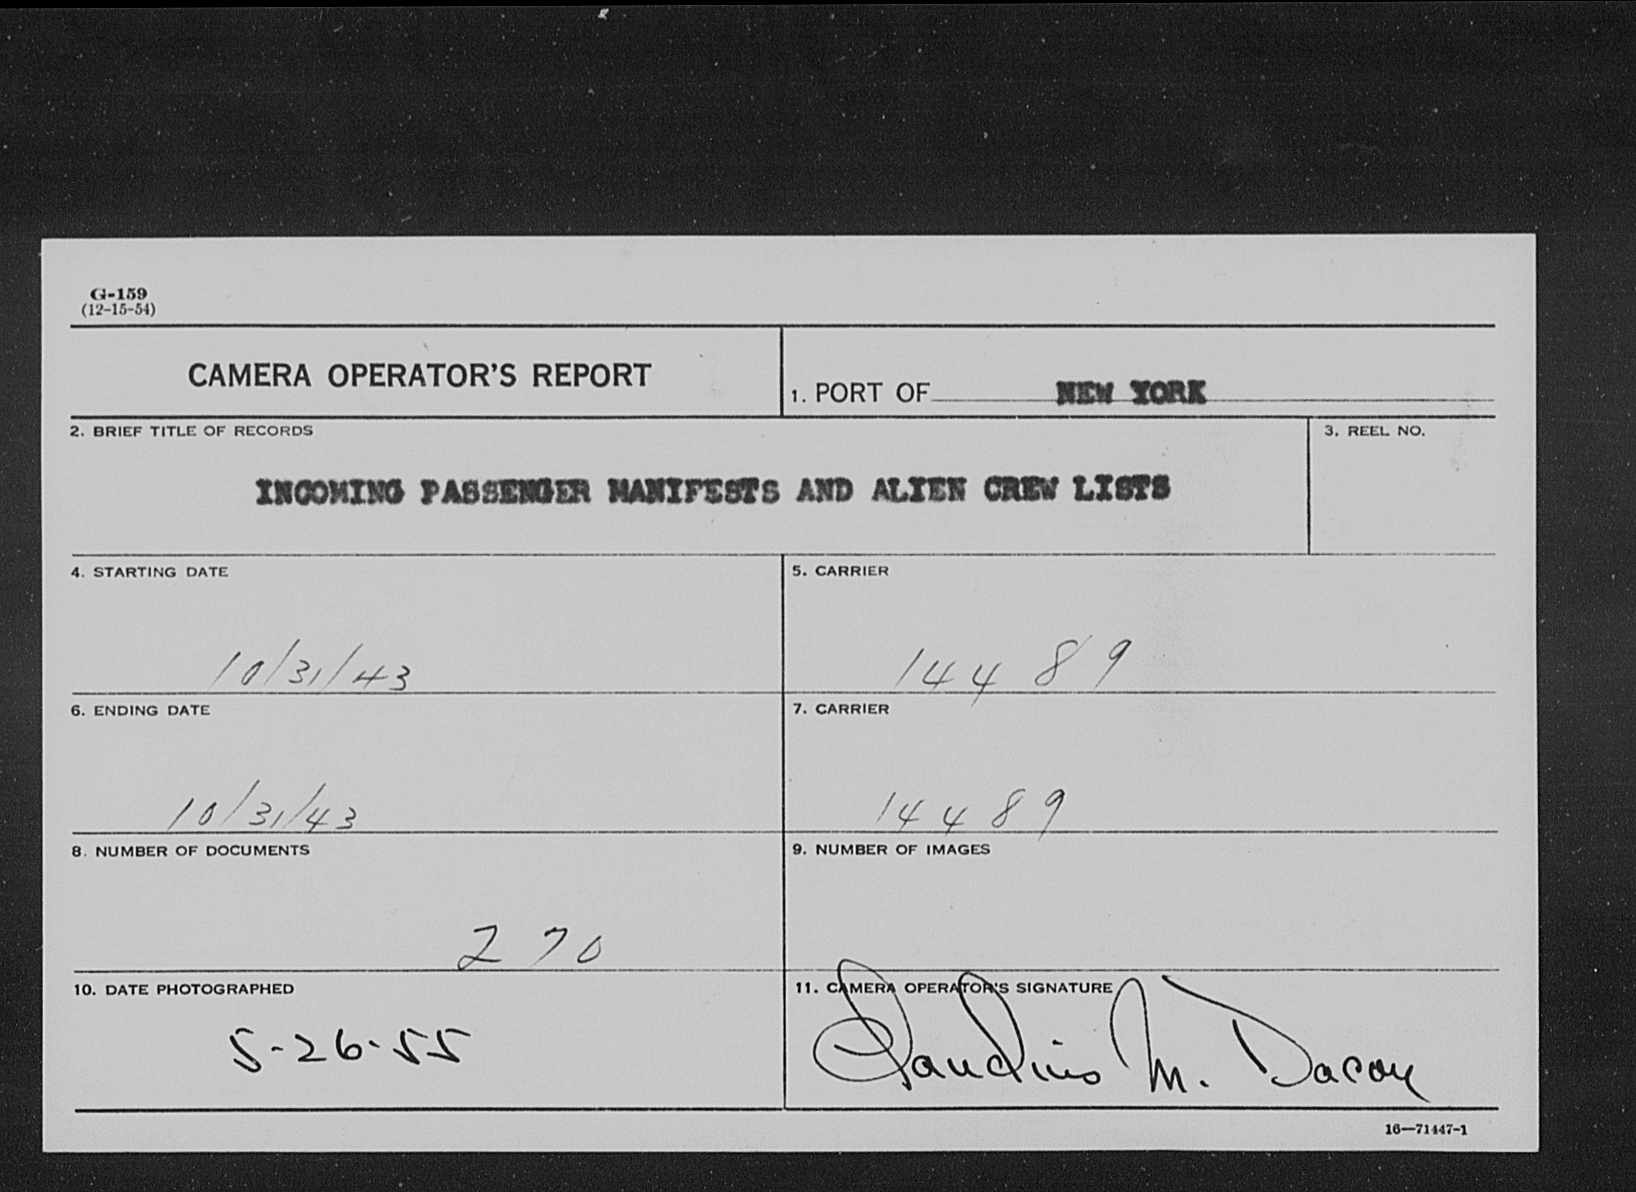 G-159
(12-15-54)
CAMERA OPERATOR'S REPORT
1. PORT OF NEW YORK
2. BRIEF TITLE OF RECORDS
3. REEL NO.
INCOMING PASSENGER MANIFESTS AND ALIEN CREW LISTS
4. STARTING DATE
5. CARRIER
10/31/43
14489
6. ENDING DATE
7. CARRIER
10/31/43
14489
8. NUMBER OF DOCUMENTS
9. NUMBER OF IMAGES
270
10. DATE PHOTOGRAPHED
11. CAMERA OPERATOR'S SIGNATURE
5-26-55
Claudius M.
16—71447-1